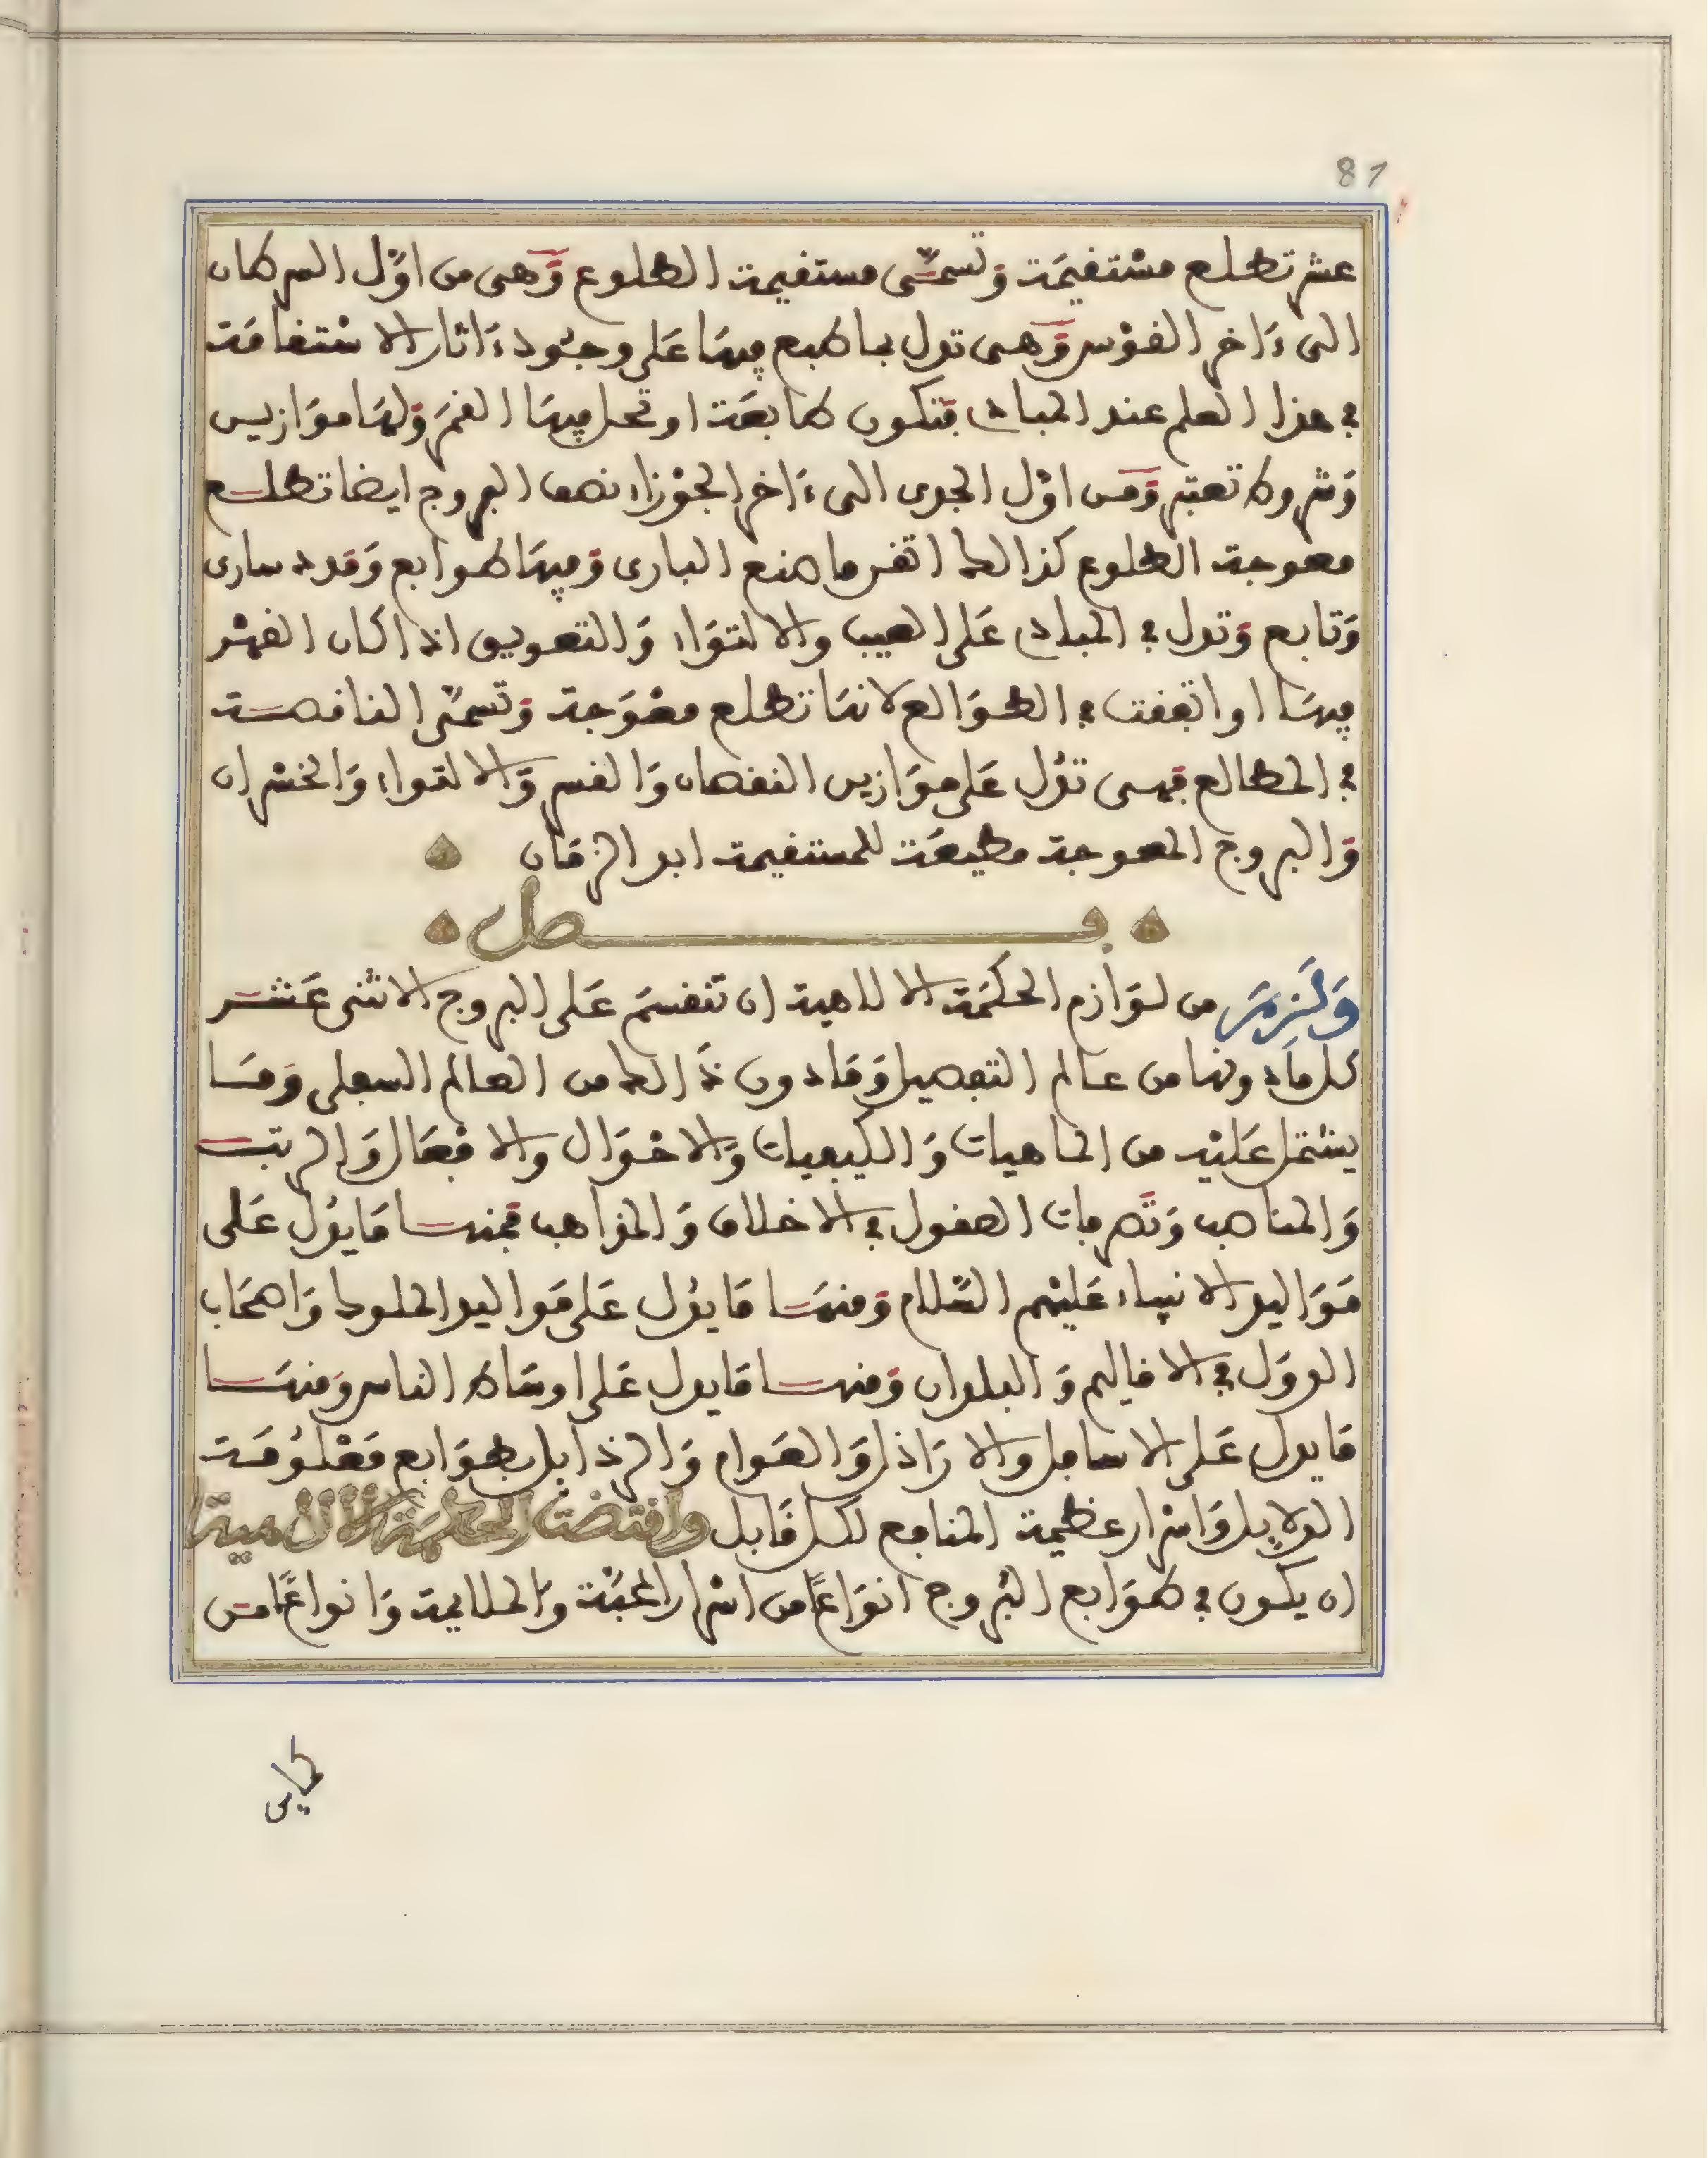 81
عشر تطلع مستقيمة وتسمى مستقيمة الطلوع وهى من اول السرطان
الى ءاخر القوس وهى تدل بما طبع فيها على وجود ءاثار الاستقامة
فى هذا العلم عند المبادى فتكون طابعة او تحل فيها القمر ولها موازين
وشروط تعتبر ومن اول الجدى الى ءاخر الجوزاء نصف البروج ايضا تطلع
معوجة الطلوع كذالك اتقن ما صنع البارى وفيها طوابع ومدد سارى
وتابع وتدل فى المبادى على العيب والالتواء والتعويق اذا كان القمر
فيها او اتفقت فى الطوالع لانها تطلع معوجة وتسمى الناقصة
فى المطالع فهى تدل على موازين النقصان والقسر والالتواء والخسران
والبروج المعوجة مطيعة للمستقيمة ابد الزمان
فصل
ولزم من لوازم الحكمة الالاهية ان تنقسم على البروج الاثنى عشر
كل ما دونها من عالم التفصيل وما دون ذالك من العالم السفلى وما
يشتمل عليه من الماهيات والكيفيات والاحوال والافعال والرتب
والمناصب وتصرفات العقول فى الاخلاق والمذاهب فمنها ما يدل على
مواليد الانبياء عليهم السلام ومنها ما يدل على مواليد الملوك واصحاب
الدول فى الاقاليم والبلدان ومنها ما يدل على اوساط الناس ومنها
ما يدل على الاسافل والاراذل والعوام والرذايل بطوابع معلومة
الدلايل واسرار عظيمة المنافع لكل قابل واقتضت الحكمة الالاهية
ان يكون فى طوابع البروج انواعا من اسرار المحبة والملايمة وانواعا من